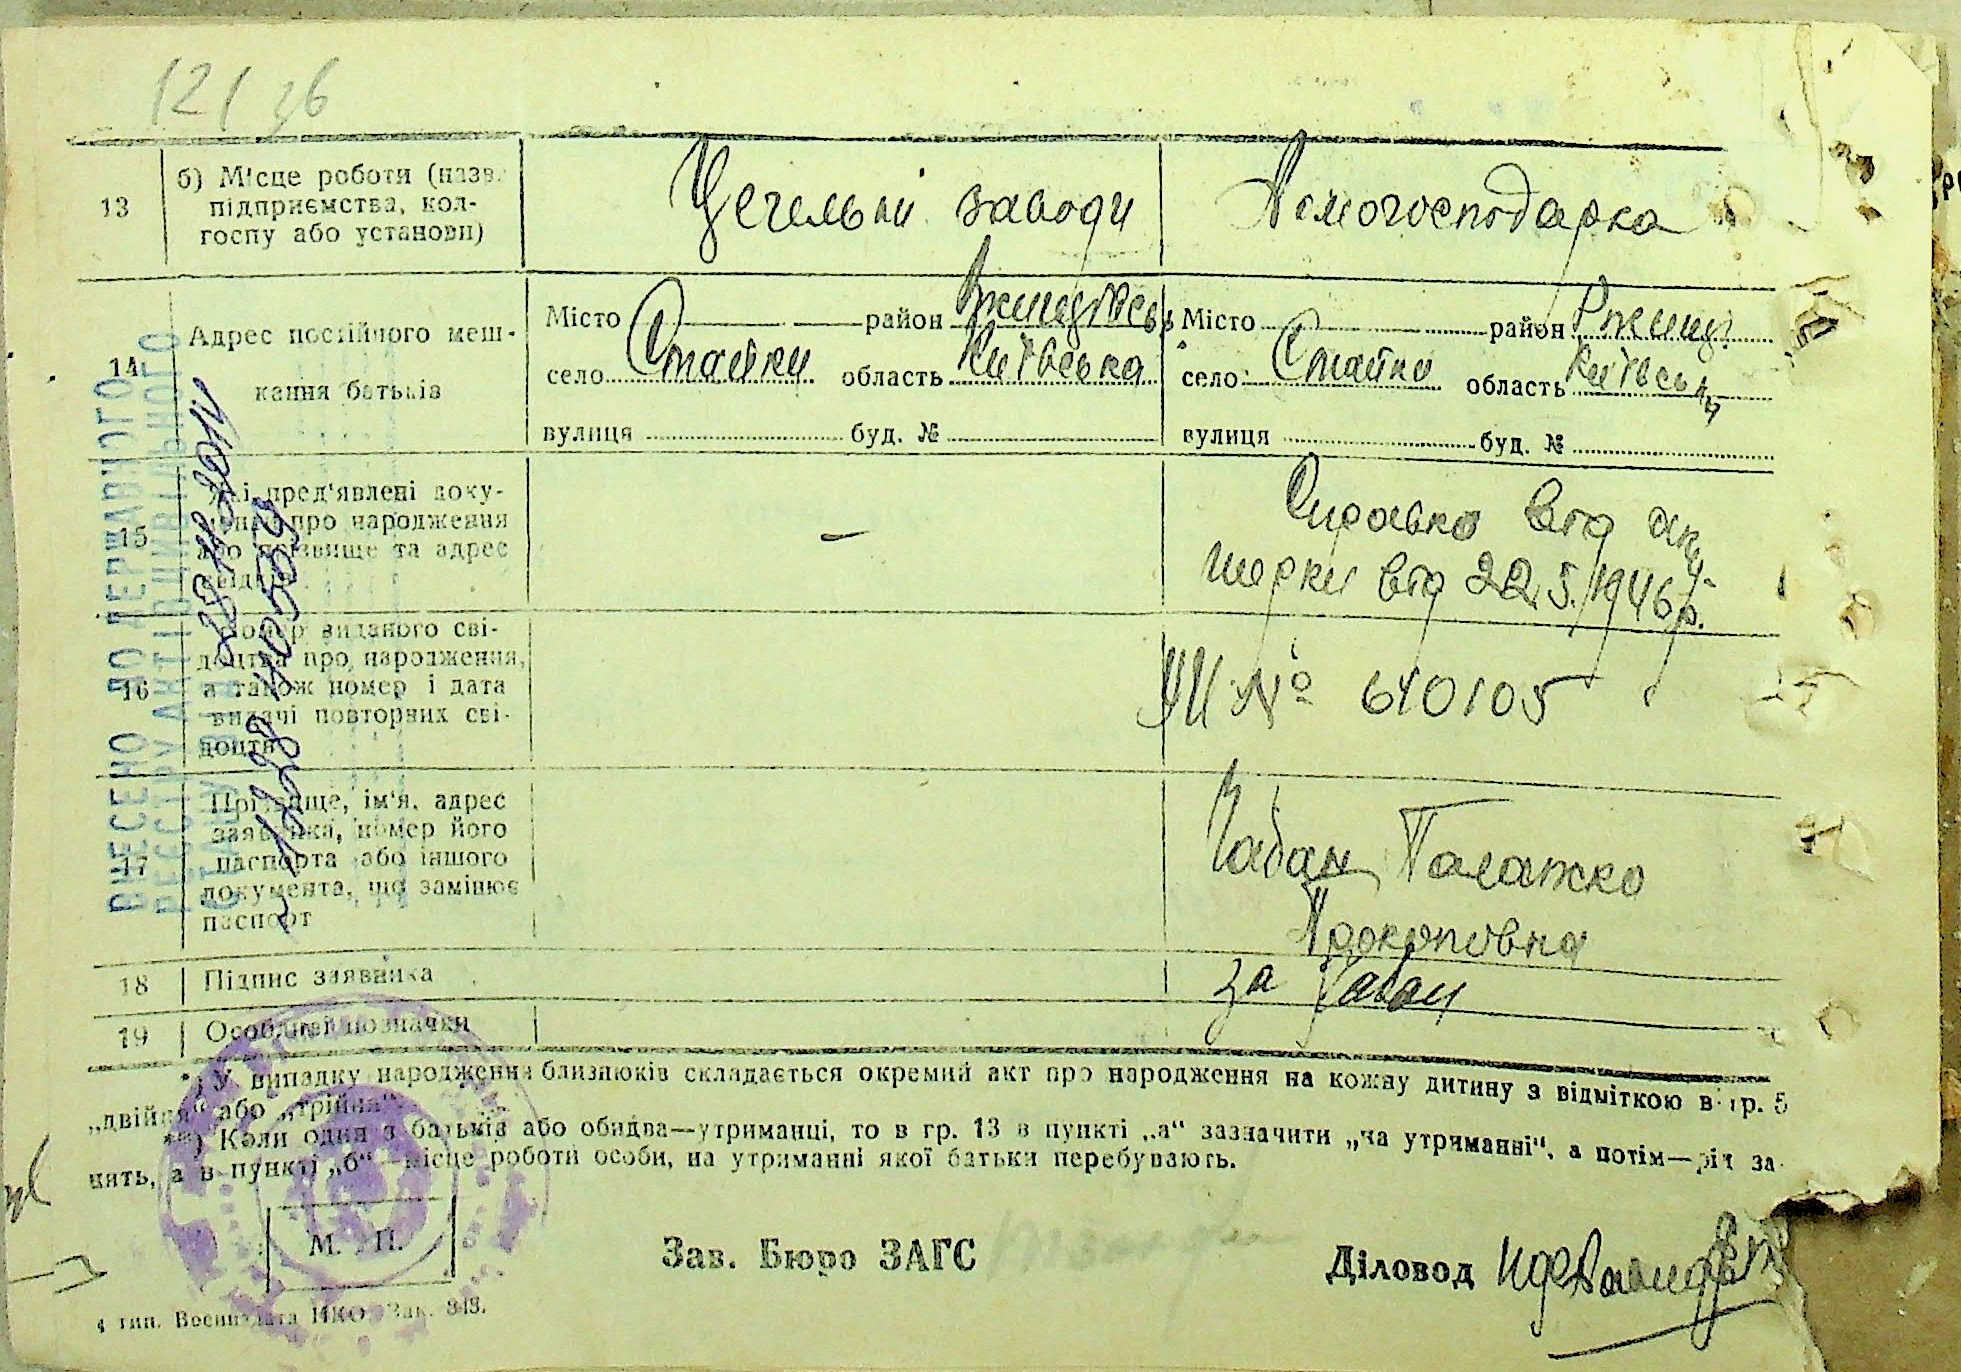 121 зб
13
б) Місце роботи (назв.
підприємства, кол-
госпу або установи)
Цегельні заводи
Домогосподарка
14
Адрес постійного меш-
кання батьків
Місто район Ржищівськ
село Стайки область Київська
вулиця буд. №
Місто район Ржищ.
село Стайки область Київськ
вулиця буд. №
15
Які пред'явлені доку-
менти про народження
або прізвище та адрес
свідків
—
Справка від аку
шерки від 22.5.1946 р.
16
Номер виданого сві-
доцтва про народження,
а також номер і дата
видачі повторних сві-
доцтв
№ 640105
17
Прізвище, ім'я, адрес
заявника, номер його
паспорта або іншого
документа, що замінює
паспорт
Чабан Палажка
Прокоповна
18
Підпис заявника
за Чабан
19
Особливі позначки
ВНЕСЕНО ДО ДЕРЖАВНОГО
РЕЄСТРУ АКТІВ ЦИВІЛЬНОГО
СТАНУ ЗА №
*) У випадку народження близнюків складається окремий акт про народження на кожну дитину з відміткою в гр. 5
„двійня“ або „трійня“.
**) Коли один з батьків або обидва—утриманці, то в гр. 13 в пункті „а“ зазначити „на утриманні“, а потім—рід за-
нять, а в пункті „б“—місце роботи особи, на утриманні якої батьки перебувають.
М. П.
Зав. Бюро ЗАГС
Діловод
4 тип. Воениздата НКО. Зак. 843.